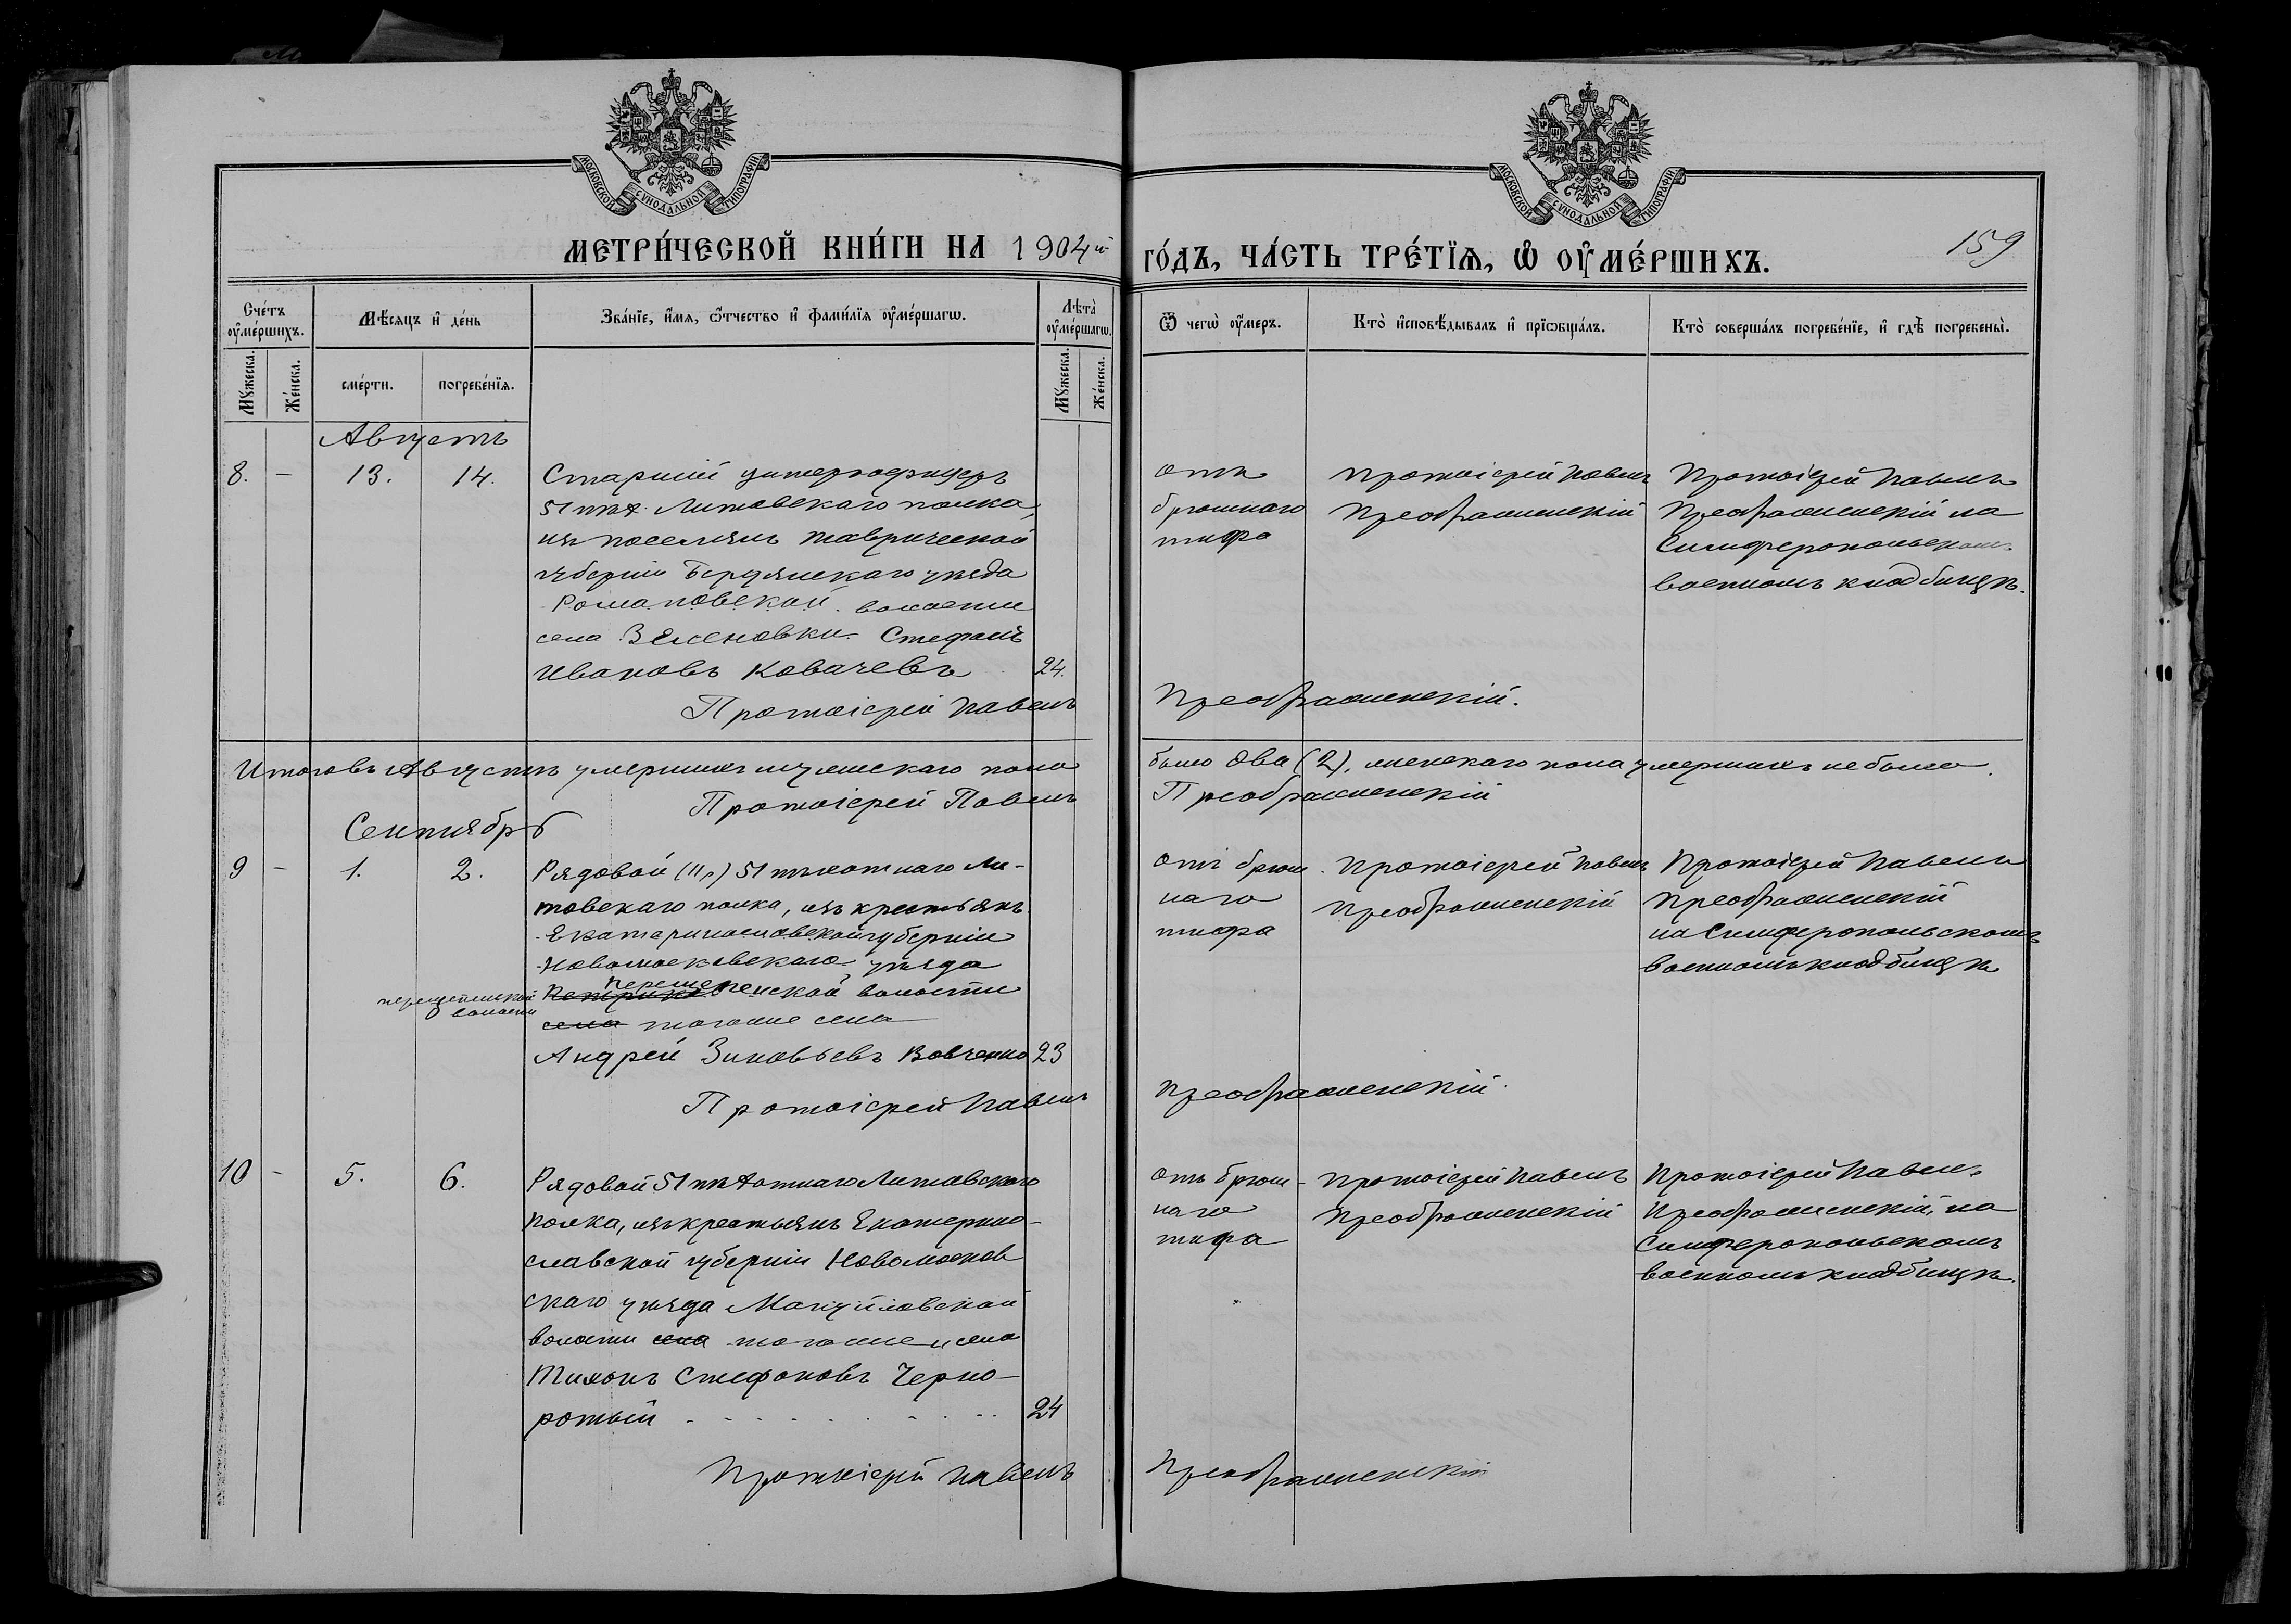 МОСКОВСКОЙ СУНОДАЛЬНОЙ ТИПОГРАФІИ
МОСКОВСКОЙ СУНОДАЛЬНОЙ ТИПОГРАФІИ
МЕТРИ́ЧЕСКОЙ КНИ́ГИ НА 1904й
ГО́ДЪ, ЧА́СТЬ ТРЕ́ТЇѦ, Ѡ҆ ОУ҆МЕ́РШИХЪ.
159
Сче́тъ оу҆ме́ршихъ.
Мѣ́сяцъ и҆ де́нь
Зва́нїе, и҆́мя, ѻ҆́тчество и҆ фами́лїя оу҆ме́ршагѡ.
Лѣта̀ оу҆ме́ршагѡ.
Ѿ чегѡ̀ оу҆́меръ.
Кто̀ и҆сповѣ́дывалъ и҆ прїѡбща́лъ.
Кто̀ соверша́лъ погребе́нїе, и҆ гдѣ̀ погребены̀.
Му́жеска.
Же́нска.
сме́рти.
погребе́нїя.
Му́жеска.
Же́нска.
Августъ
8. — 13. 14.
Старшій унтерофицеръ
51 пѣх. Литовскаго полка,
изъ поселянъ Таврической
губерніи Бердянскаго уѣзда
Романовской волости
села Зеленовки Стефанъ
Ивановъ Ковачевъ 24.
отъ
брюшного
тифа
Протоіерей Павелъ
Преображенскій
Протоіерей Павелъ
Преображенскій на
Симферопольскомъ
военномъ кладбищѣ.
Протоіерей Павелъ Преображенскій.
Итого въ Августѣ умершихъ мужескаго пола было два (2), женскаго пола умершихъ не было.
Протоіерей Павелъ Преображенскій
Сентябрь
9 — 1. 2.
Рядовой (11 р) 51 пѣхотнаго Ли-
товскаго полка, изъ крестьянъ
Екатеринославской губерніи
Новомосковскаго уѣзда
Переще
пенской волости
перещепинской
волости
села тогоже села
Андрей Зиновьевъ Вовченко 23
отъ брюш
наго
тифа
Протоіерей Павелъ
Преображенскій
Протоіерей Павелъ
Преображенскій
на Симферопольскомъ
военномъ кладбищѣ
Протоіерей Павелъ Преображенскій.
10 — 5. 6.
Рядовой 51 пѣхотнаго Литовскаго
полка, изъ крестьянъ Екатерино-
славской губерніи Новомосков
скаго уѣзда Магуйловской
волости села тогоже села
Тихонъ Стефановъ Черно-
ротый 24
отъ брюш-
наго
тифа
Протоіерей Павелъ
Преображенскій
Протоіерей Павелъ
Преображенскій, на
Симферопольскомъ
военномъ кладбищѣ.
Протоіерей Павелъ Преображенскій